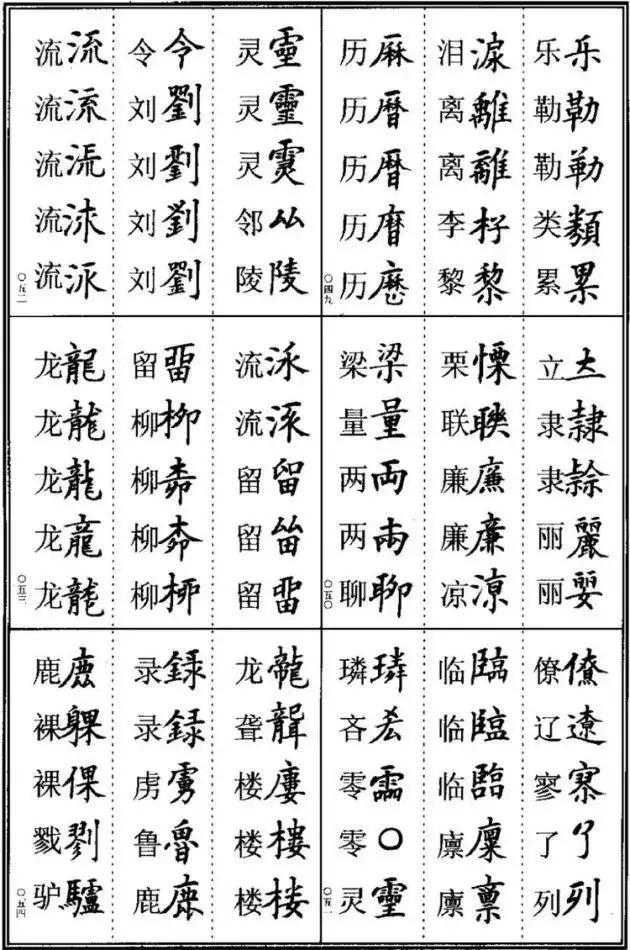 乐乐
勒勒
勒勒
类類
累累
泪淚
离離
离離
李杍
黎黎
历厤
历曆
历曆
历
历歷
〇四九
立
隶隸
隶
丽麗
丽
栗慄
联聫
廉亷
廉廉
凉凉
梁梁
量量
两両
两
聊聊
〇五〇
僚僚
辽遼
寥
了了
列列
临臨
临臨
临臨
廪廩
廪稟
璘璘
吝
零霝
零〇
灵靈
〇五一
灵
灵靈
灵
邻厸
陵陵
令令
刘劉
刘劉
刘劉
刘劉
流流
流流
流
流
流
〇五二
流
流
留留
留
留畱
留畱
柳柳
柳
柳
柳
龙龍
龙龍
龙龍
龙龍
龙龍
〇五三
龙龍
聋聾
楼廔
楼樓
楼楼
录録
录録
虏虜
鲁魯
鹿鹿
鹿鹿
裸躶
裸倮
戮剹
驴驢
〇五四